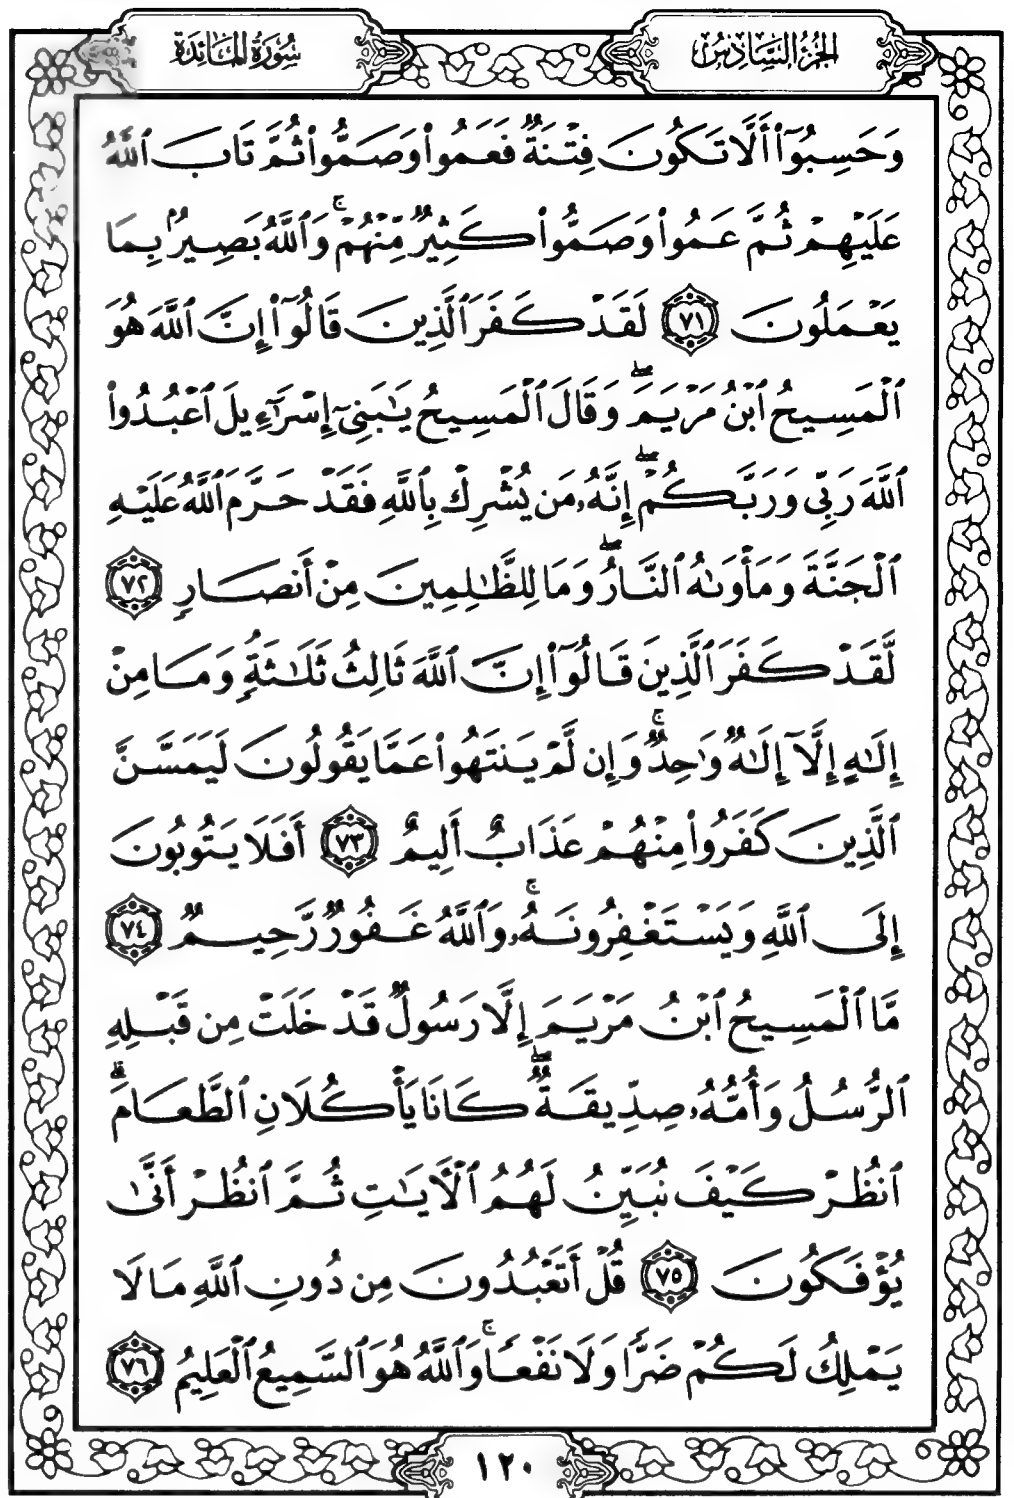 الجزء السادس
سورة المائدة
وَحَسِبُوٓا۟ أَلَّا تَكُونَ فِتْنَةٌ فَعَمُوا۟ وَصَمُّوا۟ ثُمَّ تَابَ ٱللَّهُ
عَلَيْهِمْ ثُمَّ عَمُوا۟ وَصَمُّوا۟ كَثِيرٌ مِّنْهُمْ ۚ وَٱللَّهُ بَصِيرٌۢ بِمَا
يَعْمَلُونَ ٧١ لَقَدْ كَفَرَ ٱلَّذِينَ قَالُوٓا۟ إِنَّ ٱللَّهَ هُوَ
ٱلْمَسِيحُ ٱبْنُ مَرْيَمَ ۖ وَقَالَ ٱلْمَسِيحُ يَـٰبَنِىٓ إِسْرَٰٓءِيلَ ٱعْبُدُوا۟
ٱللَّهَ رَبِّى وَرَبَّكُمْ ۖ إِنَّهُۥ مَن يُشْرِكْ بِٱللَّهِ فَقَدْ حَرَّمَ ٱللَّهُ عَلَيْهِ
ٱلْجَنَّةَ وَمَأْوَىٰهُ ٱلنَّارُ ۖ وَمَا لِلظَّـٰلِمِينَ مِنْ أَنصَارٍ ٧٢
لَّقَدْ كَفَرَ ٱلَّذِينَ قَالُوٓا۟ إِنَّ ٱللَّهَ ثَالِثُ ثَلَـٰثَةٍ وَمَا مِنْ
إِلَـٰهٍ إِلَّآ إِلَـٰهٌ وَٰحِدٌ ۚ وَإِن لَّمْ يَنتَهُوا۟ عَمَّا يَقُولُونَ لَيَمَسَّنَّ
ٱلَّذِينَ كَفَرُوا۟ مِنْهُمْ عَذَابٌ أَلِيمٌ ٧٣ أَفَلَا يَتُوبُونَ
إِلَى ٱللَّهِ وَيَسْتَغْفِرُونَهُۥ ۚ وَٱللَّهُ غَفُورٌ رَّحِيمٌ ٧٤
مَّا ٱلْمَسِيحُ ٱبْنُ مَرْيَمَ إِلَّا رَسُولٌ قَدْ خَلَتْ مِن قَبْلِهِ
ٱلرُّسُلُ وَأُمُّهُۥ صِدِّيقَةٌ ۖ كَانَا يَأْكُلَانِ ٱلطَّعَامَ ۗ
ٱنظُرْ كَيْفَ نُبَيِّنُ لَهُمُ ٱلْـَٔايَـٰتِ ثُمَّ ٱنظُرْ أَنَّىٰ
يُؤْفَكُونَ ٧٥ قُلْ أَتَعْبُدُونَ مِن دُونِ ٱللَّهِ مَا لَا
يَمْلِكُ لَكُمْ ضَرًّا وَلَا نَفْعًا ۚ وَٱللَّهُ هُوَ ٱلسَّمِيعُ ٱلْعَلِيمُ ٧٦
١٢٠